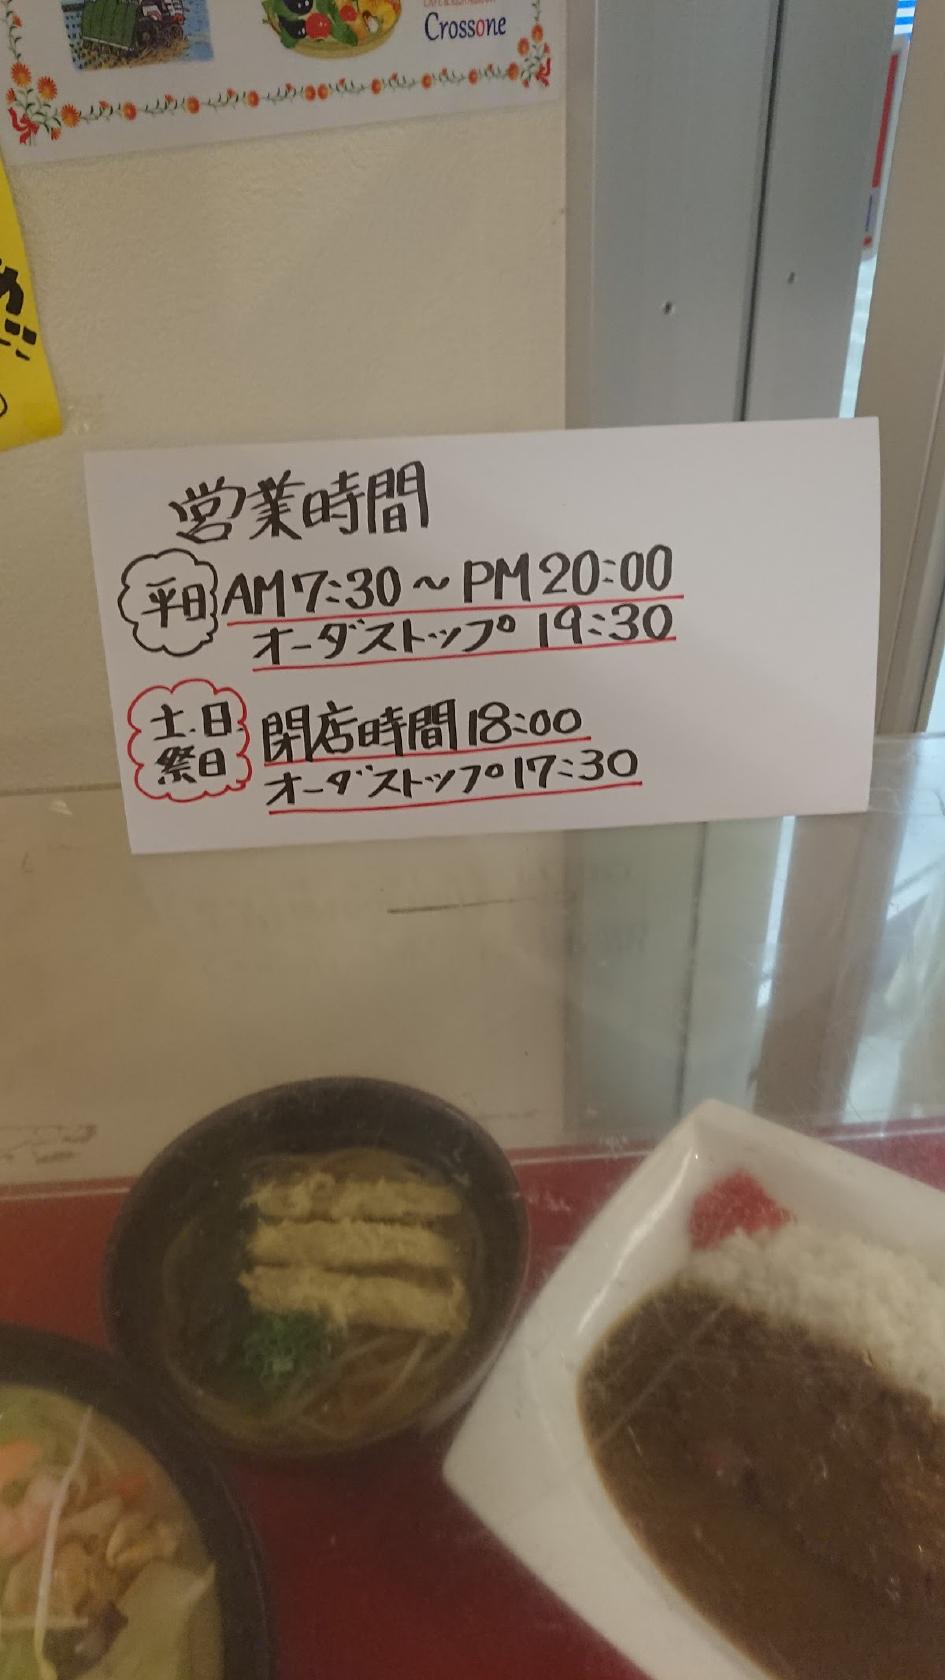 Crossone
営業時間
平日 AM7:30～PM20:00
オーダストップ 19:30
土.日 祭日
閉店時間18:00
オーダストップ17:30